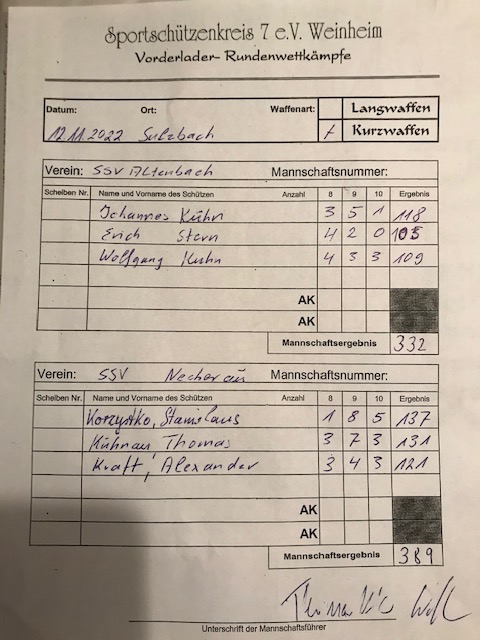 Sportschützenkreis 7 e.V. Weinheim
Vorderlader- Rundenwettkämpfe
Datum: Ort: Waffenart: Langwaffen
12.11.2022 Sulzbach x Kurzwaffen
Verein: SSV Altenbach Mannschaftsnummer:
Scheiben Nr. Name und Vorname des Schützen Anzahl 8 9 10 Ergebnis
Johannes Kühn 3 5 1 118
Erich Stern 4 2 0 105
Wolfgang Kuhn 4 3 3 109
AK
AK
Mannschaftsergebnis 332
Verein: SSV Mannschaftsnummer:
Scheiben Nr. Name und Vorname des Schützen Anzahl 8 9 10 Ergebnis
Korzystko, Stanislaus 1 8 5 137
Kühnau, Thomas 3 7 3 131
Kraft, Alexander 3 4 3 121
AK
AK
Mannschaftsergebnis 389
Unterschrift der Mannschaftsführer